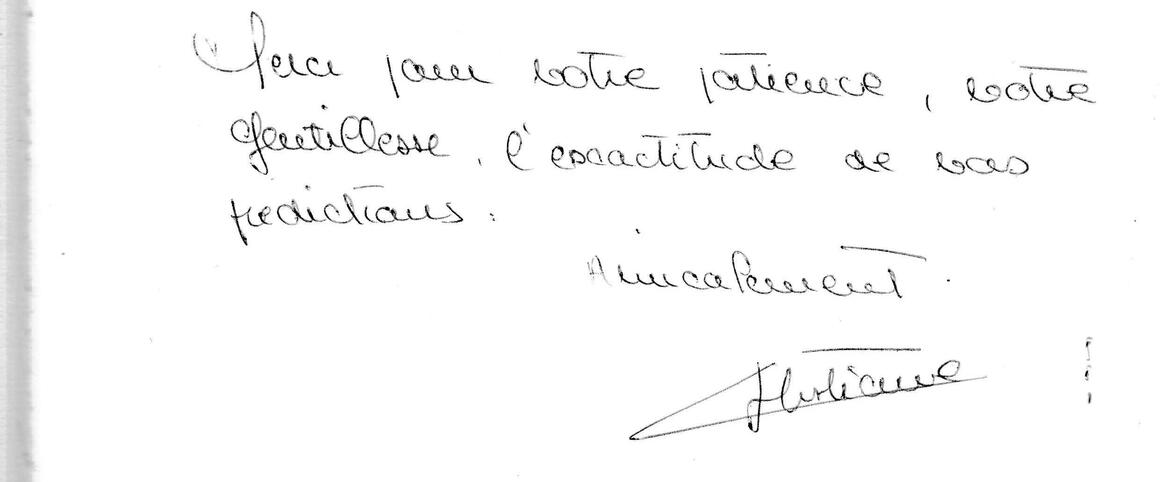 Merci pour votre patience, votre
gentillesse, l'exactitude de vos
prédictions.
Amicalement.